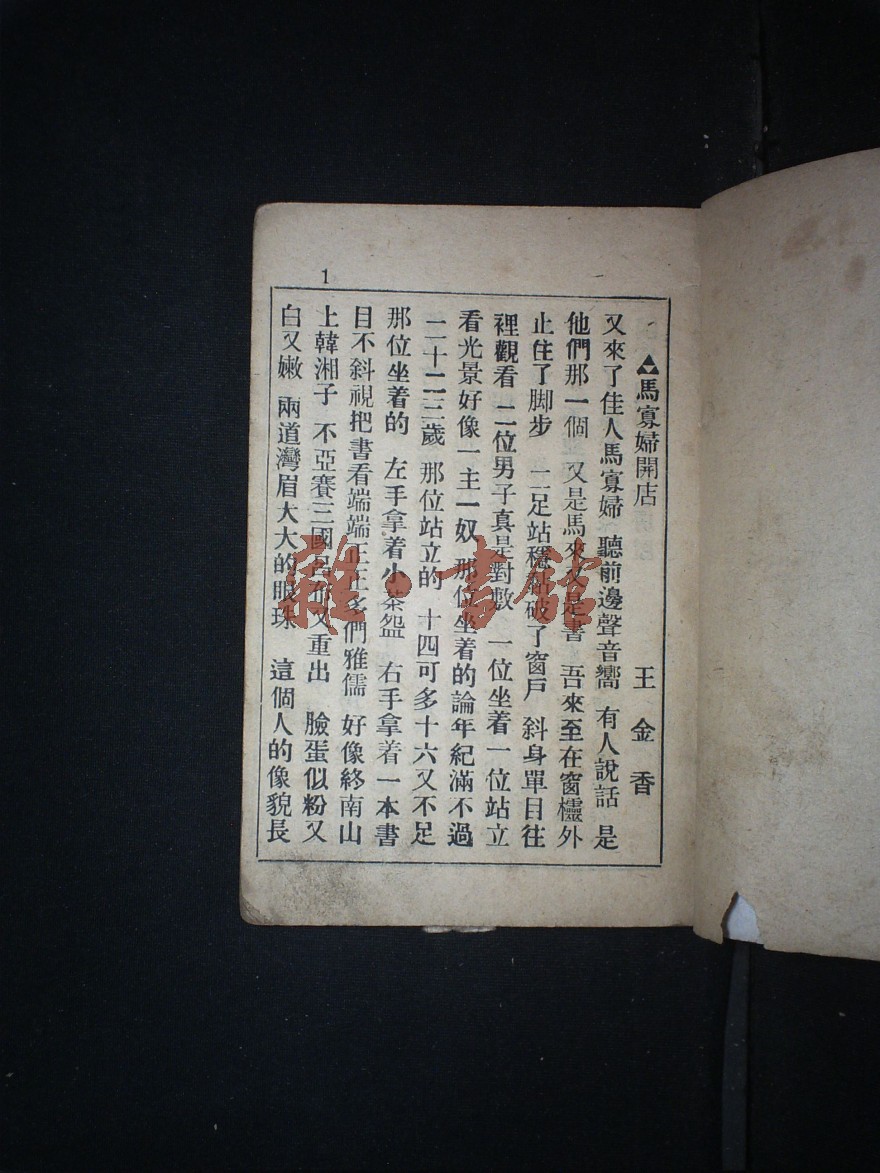 1
▲馬寡婦開店 王金香
又來了佳人馬寡婦 聽前邊聲音嚮 有人說話 是
他們那一個 又是馬來又是書 吾來至在窗欞外
止住了脚步 二足站穩 破了窗戶 斜身單目往
裡觀看 二位男子真是對敷 一位坐着一位站立
看光景好像一主一奴 那位坐着的論年紀滿不過
二十二三歲 那位站立的 十四可多十六又不足
那位坐着的 左手拿着小茶盌 右手拿着一本書
目不斜視把書看端端正正多們雅儒 好像終南山
上韓湘子 不亞賽三國呂布又重出 臉蛋似粉又
白又嫩 兩道灣眉大大的眼珠 這個人的像貌長
雜·書館